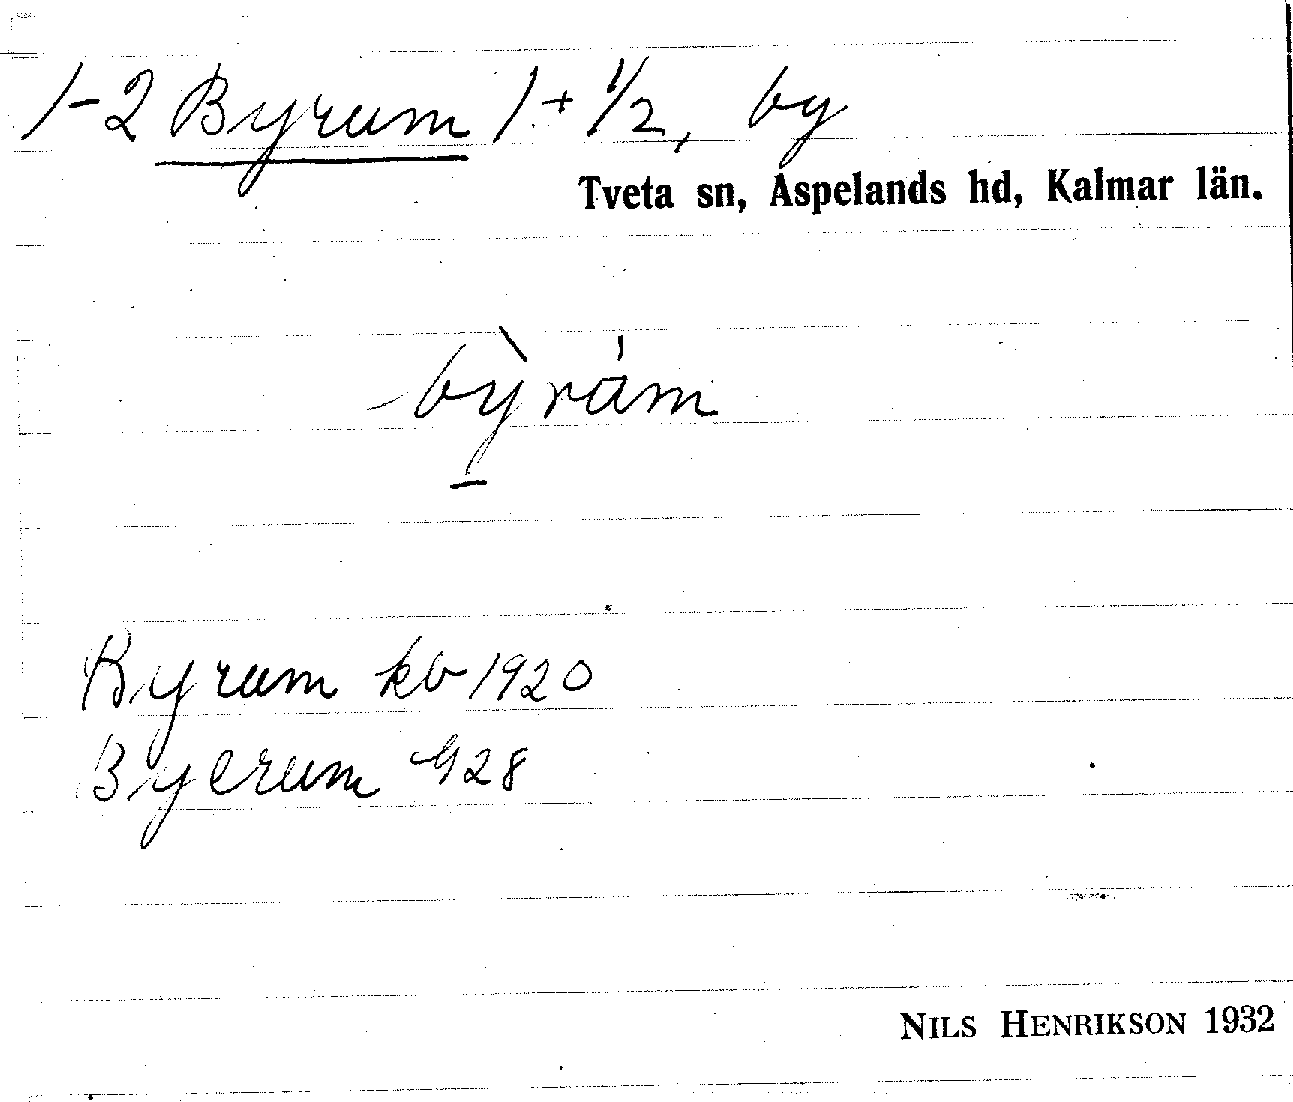 1-2 Byrum 1 + 1/2, by
Tveta sn, Aspelands hd, Kalmar län.
bỳrám
Byrum kb 1920
Byerum G28
NILS HENRIKSON 1932